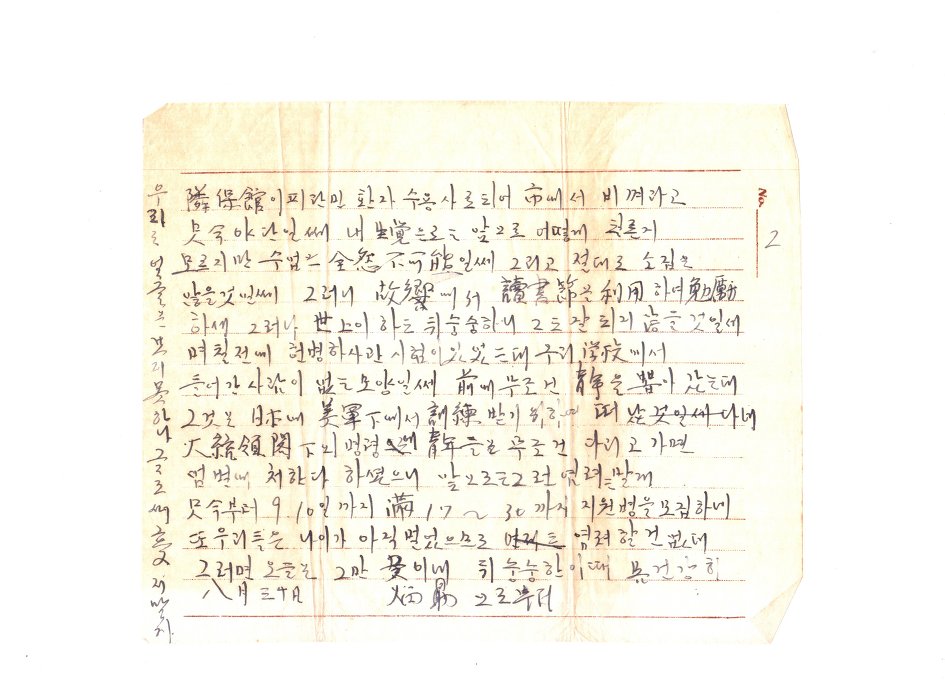 No 2
隣保館이 피란민 환자 수용사로 되어 市에서 비껴라고
못속 야단일쎄 내 生覺으로는 앞으로 어떻게 될른지
모르지만 수업은 全然 不可能일쎄 그리고 절대로 소집은
않을것일쎄 그러니 故鄕에서 讀書 利用하여 勉勵
하세 그러나 世上이 하도 뒤숭숭하니 그도 잘 되지 않을것일세
며칠전에 헌병하사관 시험이 있었는데 우리 學校에서
들어간 사람이 없는 모양일쎄 前에 무조건 靑年을 뽑아 갔는데
그것은 日本에 美軍下에서 訓練 받기 위하여 떠난것일쎄 다네
大統領閣下의 명령 靑年들을 무조건 다리고 가면
엄벌에 처한다 하셨으니 앞으로는 그런 염려는 말게
못속부터 9.10일까지 滿 17~30까지 지원병을 모집하네
또 우리들은 나이가 아직 멀었으므로 염려할건 없네
그러면 오늘은 그만 끝이네 뒤숭숭한 이때 건강히
八月 三十日 으로부터
우리는 얼굴은 보지 못하나 글로써 変치말자